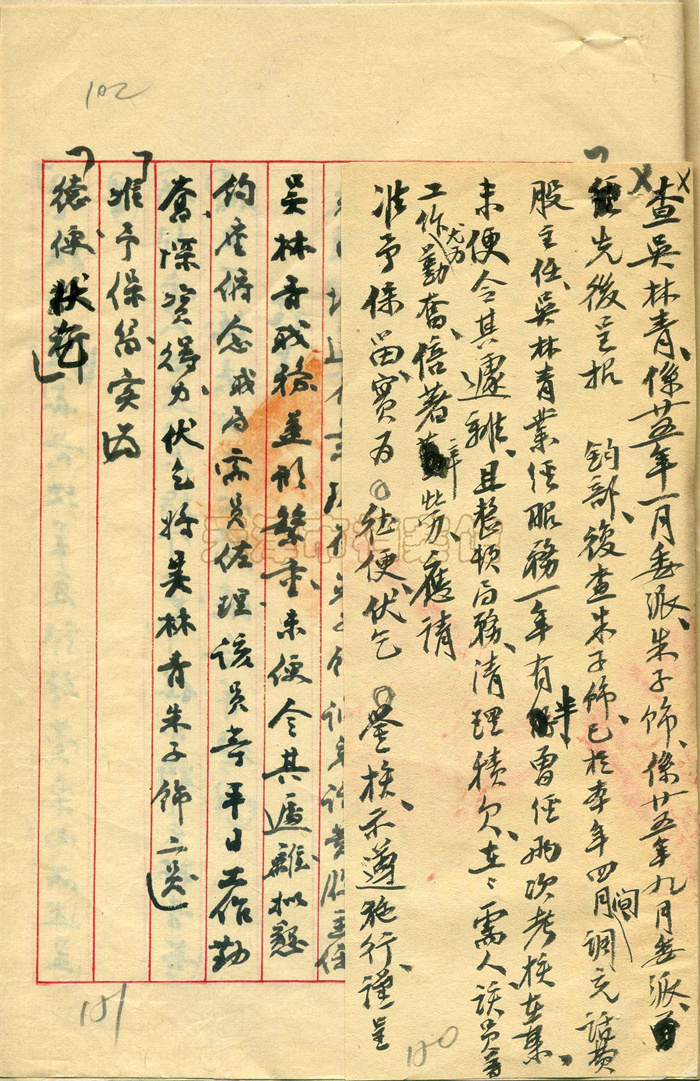 查吳林青、係廿五年一月委派、朱子飾、係廿五年九月委派、
先後呈报 鈞部、復查朱子飾、已於本年四月間調充話費
股主任、吳林青業經服務一年有半、曾經兩次考核在案、
未便令其遽離、且整頓局務、清理積欠、在在需人、該員等
工作尤为勤奮、倍著辛勞、應請
准予保留、實为○德便、伏乞○鑒核示遵施行、謹呈
吳林青職務並形繁重、未便令其遽離、拟懇
鈞座俯念職局需員佐理、該員等平日工作勤
奮、深資得力、伏乞將吳林青朱子飾二員
准予保留、实为
德便
102
101
100